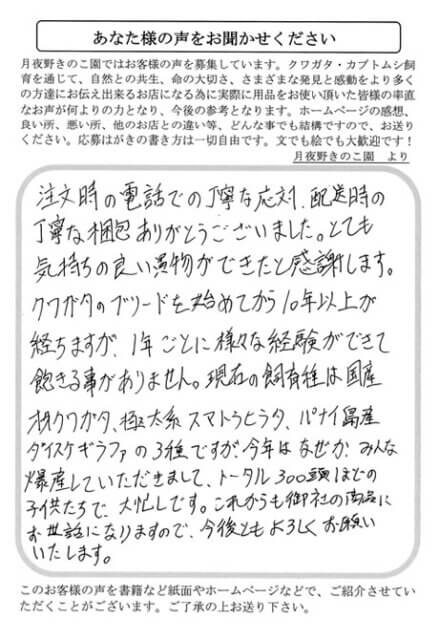 あなた様の声をお聞かせください
月夜野きのこ園ではお客様の声を募集しています。クワガタ・カブトムシ飼
育を通じて、自然との共生、命の大切さ、さまざまな発見と感動をより多く
の方達にお伝え出来るお店になる為に実際に用品をお使い頂いた皆様の率直
なお声が何よりの力となり、今後の参考となります。ホームページの感想、
良い所、悪い所、他のお店との違い等、どんな事でも結構ですので、お送り
ください。応募はがきの書き方は一切自由です。文でも絵でも大歓迎です！
月夜野きのこ園 より
注文時の電話での丁寧な応対、配送時の
丁寧な梱包ありがとうございました。とても
気持ちの良い買物ができたと感謝します。
クワガタのブリードを始めてから10年以上が
経ちますが、1年ごとに様々な経験ができて
飽きる事がありません。現在の飼育種は国産
オオクワガタ、極太系スマトラヒラタ、パナイ島産
ダイスケギラファの3種ですが、今年はなぜか、みんな
爆産していただきまして、トータル300頭ほどの
子供たちで、大忙しです。これからも御社の商品に
お世話になりますので、今後ともよろしくお願い
いたします。
このお客様の声を書籍など紙面やホームページなどで、ご紹介させてい
ただくことがございます。ご了承の上お送り下さい。